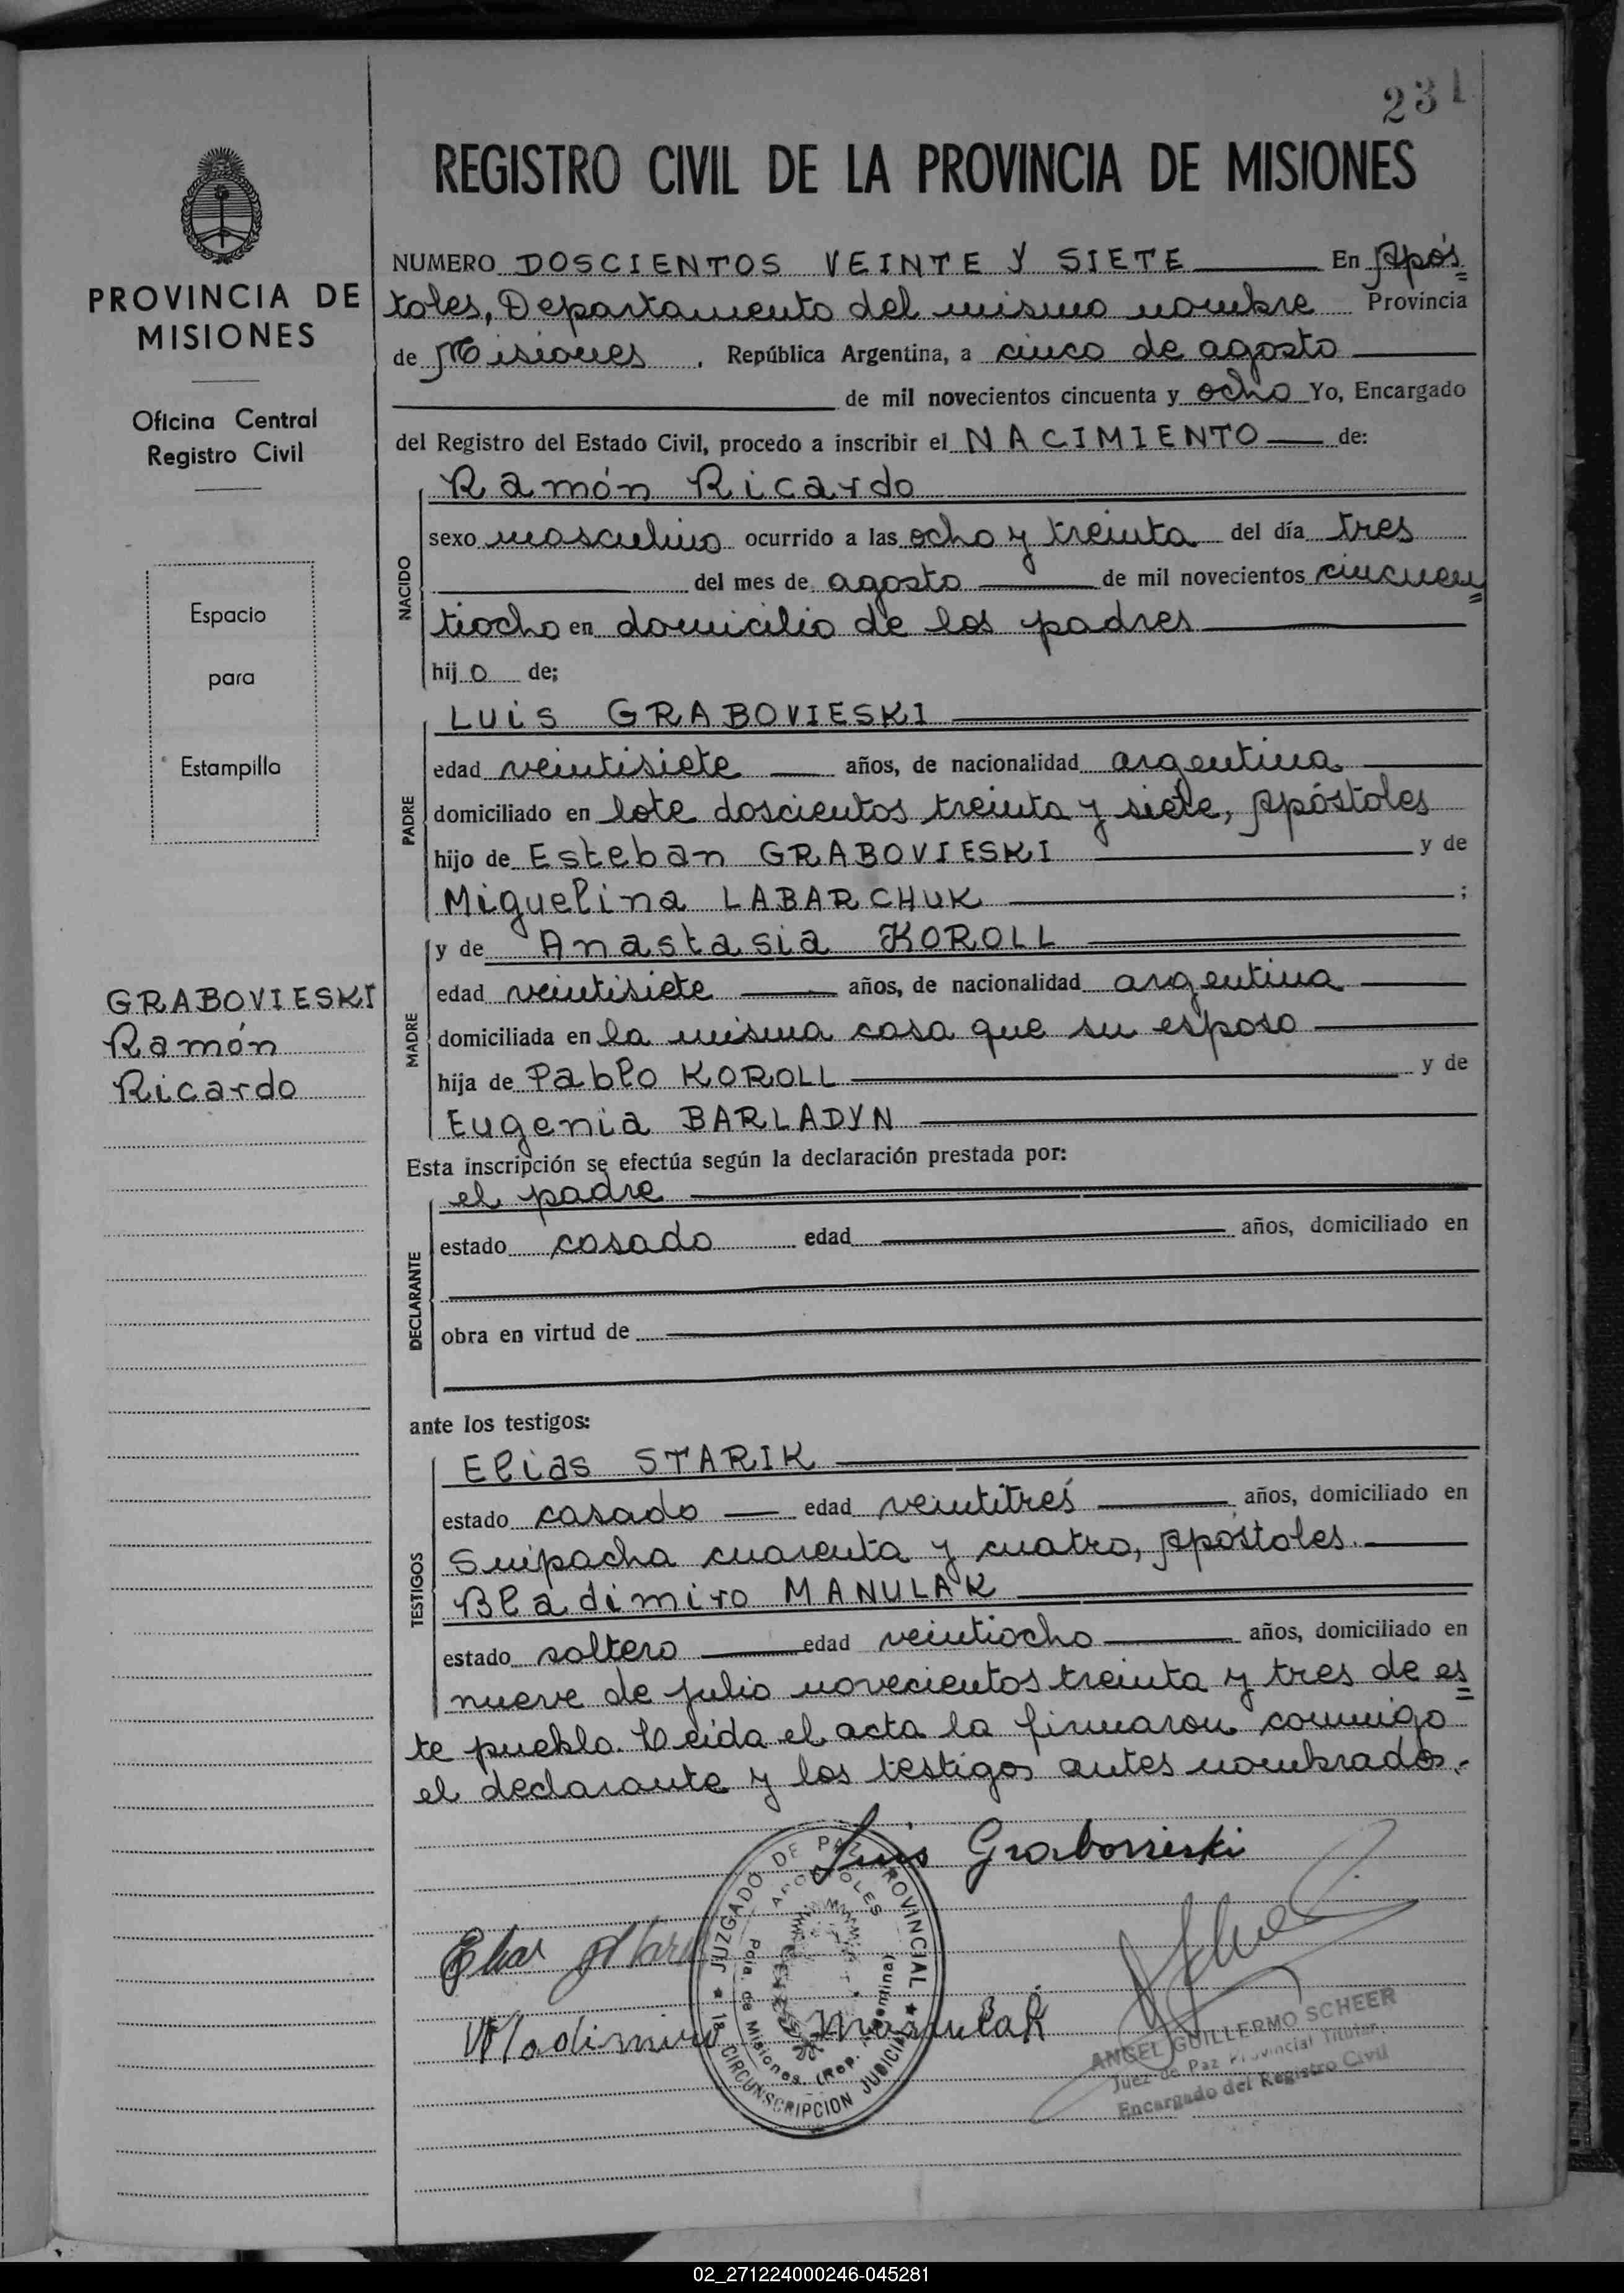 231
REGISTRO CIVIL DE LA PROVINCIA DE MISIONES
PROVINCIA DE
MISIONES
Oficina Central
Registro Civil
Espacio
para
Estampilla
GRABOVIESKI
Ramón
Ricardo
NUMERO DOSCIENTOS VEINTE Y SIETE En Após=
toles, Departamento del mismo nombre Provincia
de Misiones, República Argentina, a cinco de agosto
de mil novecientos cincuenta y ocho Yo, Encargado
del Registro del Estado Civil, procedo a inscribir el NACIMIENTO de:
NACIDO
Ramón Ricardo
sexo masculino ocurrido a las ocho y treinta del día tres
del mes de agosto de mil novecientos cincuen=
tiocho en domicilio de los padres
hijo de;
PADRE
Luis GRABOVIESKI
edad veintisiete años, de nacionalidad argentina
domiciliado en lote doscientos treinta y siete, Apóstoles
hijo de Esteban GRABOVIESKI y de
Miguelina LABARCHUK ;
MADRE
y de Anastasia KOROLL
edad veintisiete años, de nacionalidad argentina
domiciliada en la misma casa que su esposo
hija de Pablo KOROLL y de
Eugenia BARLADYN
Esta inscripción se efectúa según la declaración prestada por:
DECLARANTE
el padre
estado casado edad años, domiciliado en
obra en virtud de
ante los testigos:
TESTIGOS
Elias STARIK
estado casado edad veintitres años, domiciliado en
Suipacha cuarenta y cuatro, Apóstoles.
Bladimiro MANULAK
estado soltero edad veintiocho años, domiciliado en
nueve de julio novecientos treinta y tres de es=
te pueblo. Leida el acta la firmaron conmigo
el declarante y los testigos antes nombrados.-
Luis Grabovieski
Elias Starik
Wladimiro Manulak
JUZGADO DE PAZ PROVINCIAL
APOSTOLES
Pcia. de Misiones (Rep. Argentina)
1a. CIRCUNSCRIPCION JUDICIAL
ANGEL GUILLERMO SCHEER
Juez de Paz Provincial Titular
Encargado del Registro Civil
02_271224000246-045281